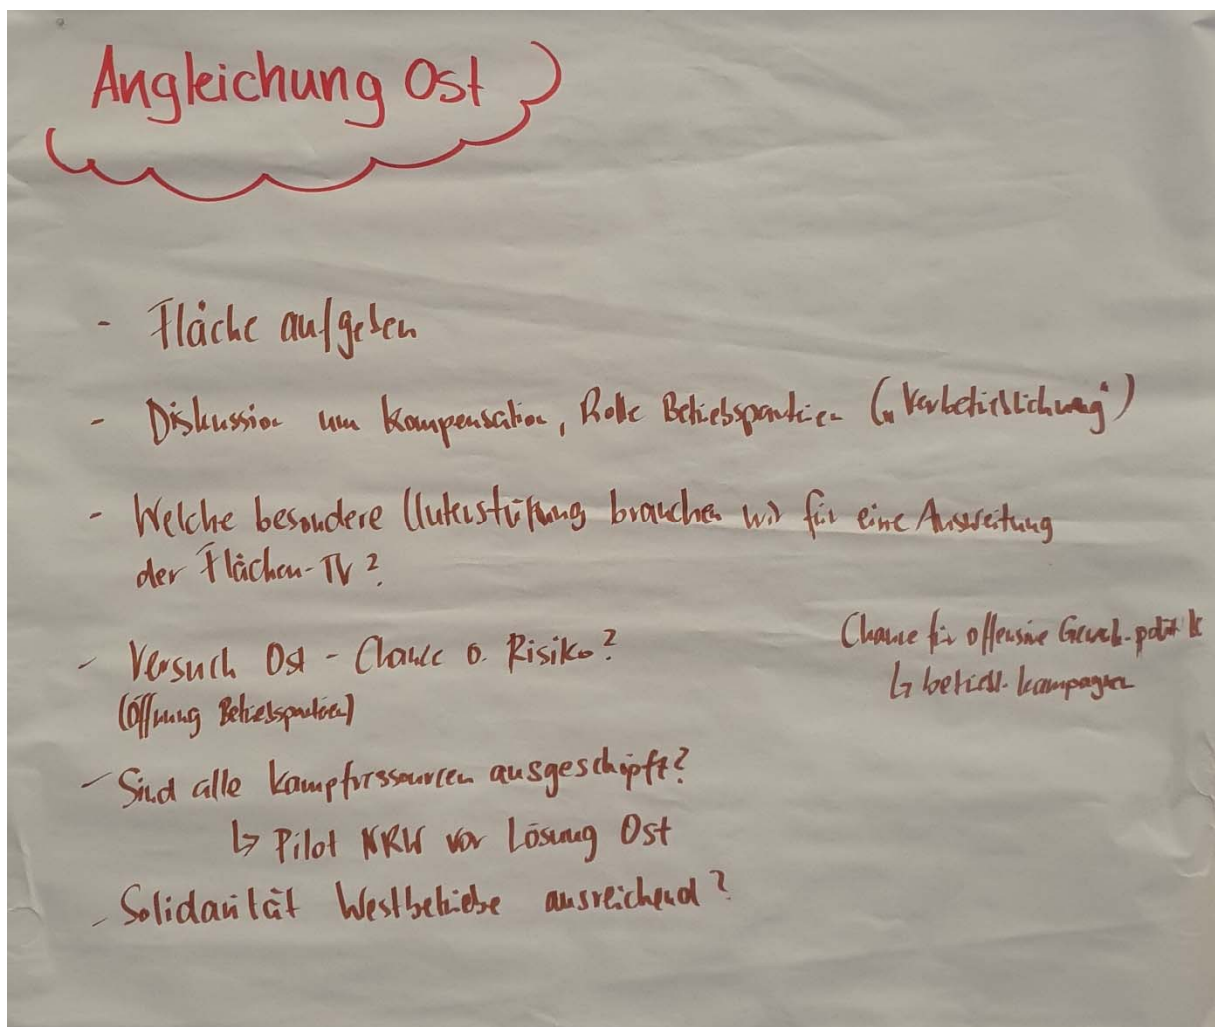 Angleichung Ost
- Fläche aufgeben
- Diskussion um Kompensation, Rolle Betriebsparteien („Verbetrieblichung“)
- Welche besondere Unterstützung brauchen wir für eine Ausweitung
der Flächen-TV?
- Versuch Ost - Chance o. Risiko?
(Öffnung Betriebsparteien)
Chance für offensive Gewerk.politik
↳ betriebl. Kampagnen
- Sind alle Kampfressourcen ausgeschöpft?
↳ Pilot NRW vor Lösung Ost
- Solidarität Westbetriebe ausreichend?